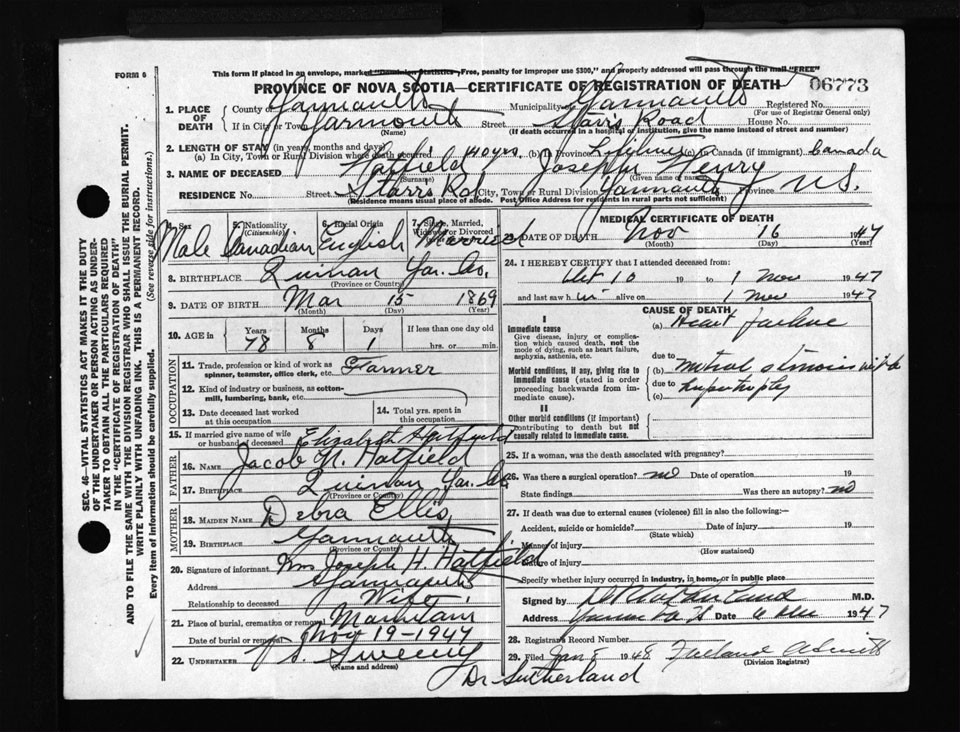 FORM 6
This form if placed in an envelope, marked "Dominion Statistics-Free, penalty for improper use $300," and properly addressed will pass through the mail "FREE"
PROVINCE OF NOVA SCOTIA—CERTIFICATE OF REGISTRATION OF DEATH
06773
1. PLACE OF DEATH
County of Yarmouth Municipality of Yarmouth Registered No.
(For use of Registrar General only)
If in City or Town Yarmouth Street Starrs Road House No.
(Name) (If death occurred in a hospital or institution, give the name instead of street and number)
2. LENGTH OF STAY (in years, months and days)
(a) In City, Town or Rural Division where death occurred 40 yrs. (b) In Province Lifetime (c) In Canada (if immigrant) Canada
3. NAME OF DECEASED Hatfield Joseph Henry
(Surname) (Given name or names)
RESIDENCE No. Street Starrs Rd City, Town or Rural Division Yarmouth Province N.S.
(Residence means usual place of abode. Post Office Address for residents in rural parts not sufficient)
SEC. 46—VITAL STATISTICS ACT MAKES IT THE DUTY
OF THE UNDERTAKER OR PERSON ACTING AS UNDER-
TAKER TO OBTAIN ALL THE PARTICULARS REQUIRED
IN THE "CERTIFICATE OF REGISTRATION OF DEATH"
AND TO FILE THE SAME WITH THE DIVISION REGISTRAR WHO SHALL ISSUE THE BURIAL PERMIT.
WRITE PLAINLY WITH UNFADING INK. THIS IS A PERMANENT RECORD.
Every item of information should be carefully supplied. (See reverse side for instructions.)
4. Sex 5. Nationality (Citizenship) 6. Racial Origin 7. Single, Married, Widowed or Divorced
Male Canadian English Married
8. BIRTHPLACE Quinan Yar. Co.
(Province or Country)
9. DATE OF BIRTH Mar 15 1869
(Month) (Day) (Year)
10. AGE in Years Months Days If less than one day old
78 8 1 hrs. or min.
OCCUPATION
11. Trade, profession or kind of work as spinner, teamster, office clerk, etc. Farmer
12. Kind of industry or business, as cotton-mill, lumbering, bank, etc.
13. Date deceased last worked at this occupation
14. Total yrs. spent in this occupation
15. If married give name of wife or husband of deceased Elizabeth Hatfield
FATHER
16. Name Jacob N. Hatfield
17. Birthplace Quinan Yar. Co
(Province or Country)
MOTHER
18. MAIDEN NAME Debra Ellis
19. BIRTHPLACE Yarmouth
(Province or Country)
20. Signature of informant Mrs Joseph H. Hatfield
Address Yarmouth
Relationship to deceased Wife
21. Place of burial, cremation or removal
Date of burial or removal Nov 19-1947
22. UNDERTAKER Sweeny
(Name and address)
Dr Sutherland
MEDICAL CERTIFICATE OF DEATH
23. DATE OF DEATH Nov 16 1947
(Month) (Day) (Year)
24. I HEREBY CERTIFY that I attended deceased from:
Oct 10 19 to 1 Nov 1947
and last saw him alive on 1 Nov 1947
CAUSE OF DEATH
I
Immediate cause
Give disease, injury or complication which caused death, not the mode of dying, such as heart failure, asphyxia, asthenia, etc.
(a) Heart Failure
due to
Morbid conditions, if any, giving rise to immediate cause (stated in order proceeding backwards from immediate cause).
(b) mitral stenosis with
due to
(c) hypertrophy
II
Other morbid conditions (if important) contributing to death but not causally related to immediate cause.
25. If a woman, was the death associated with pregnancy?
26. Was there a surgical operation? no Date of operation 19
State findings Was there an autopsy? no
27. If death was due to external causes (violence) fill in also the following:—
Accident, suicide or homicide? Date of injury 19
(State which)
Manner of injury
(How sustained)
Nature of injury
Specify whether injury occurred in industry, in home, or in public place
Signed by M.D.
Address Date 6 Dec 1947
28. Registrar's Record Number
29. Filed Jan 8 1948
(Division Registrar)